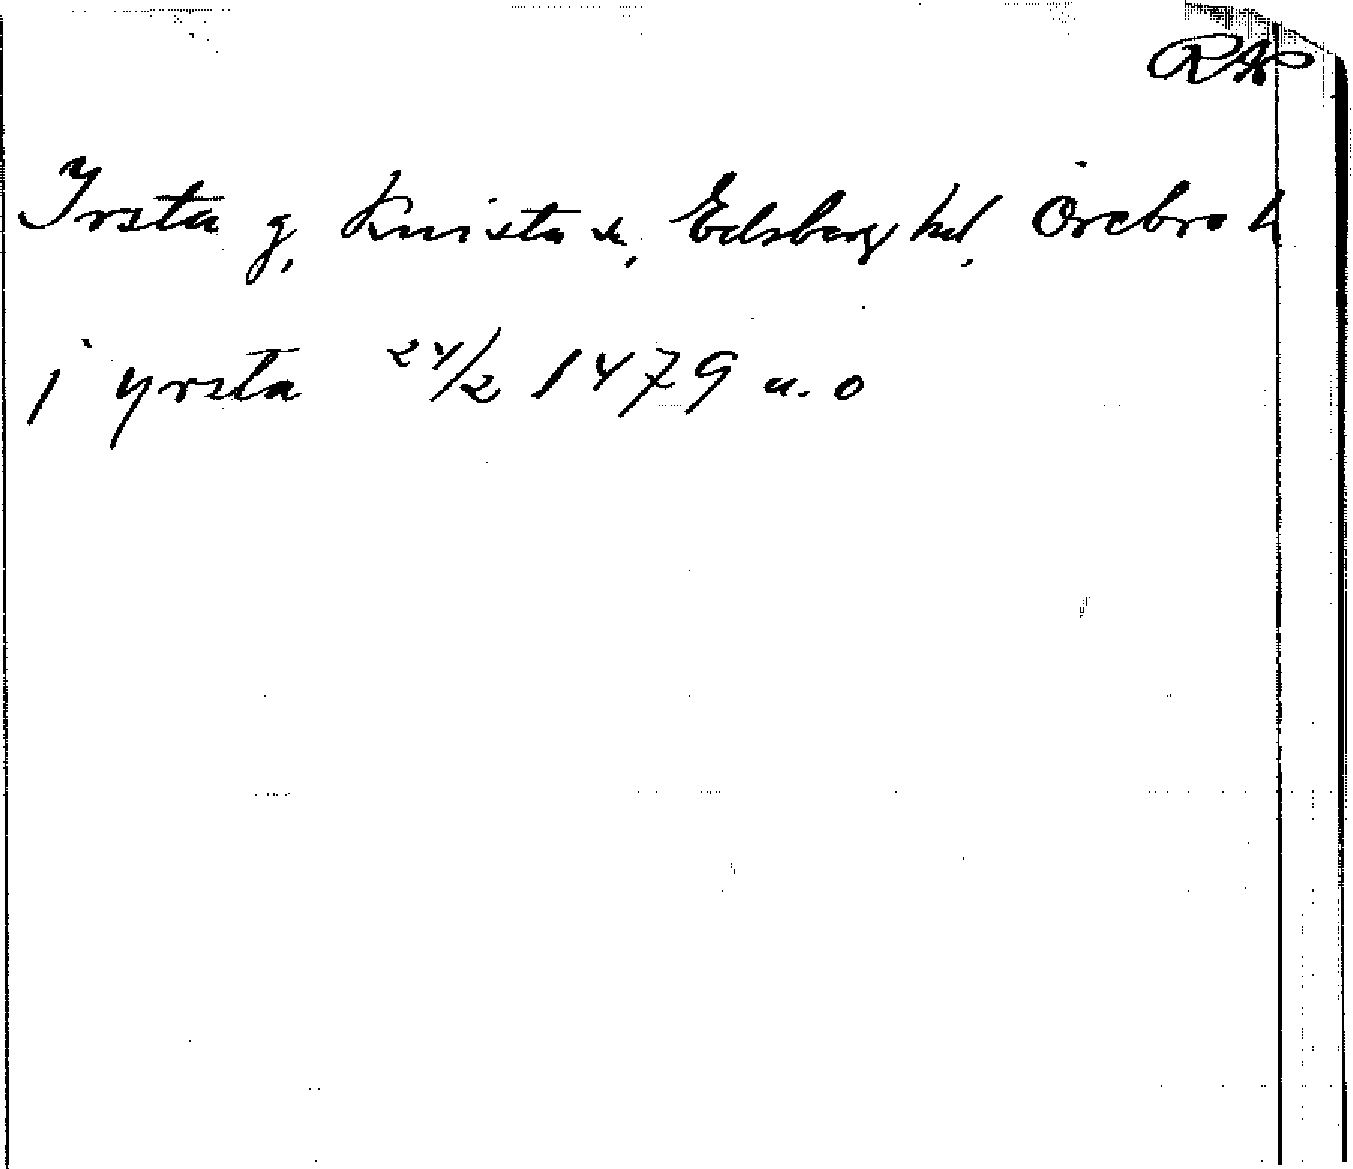 RAP
Yrsta g, Knista sn, Edsberg hd, Örebro l
j yrsta 24/2 1479 u. o